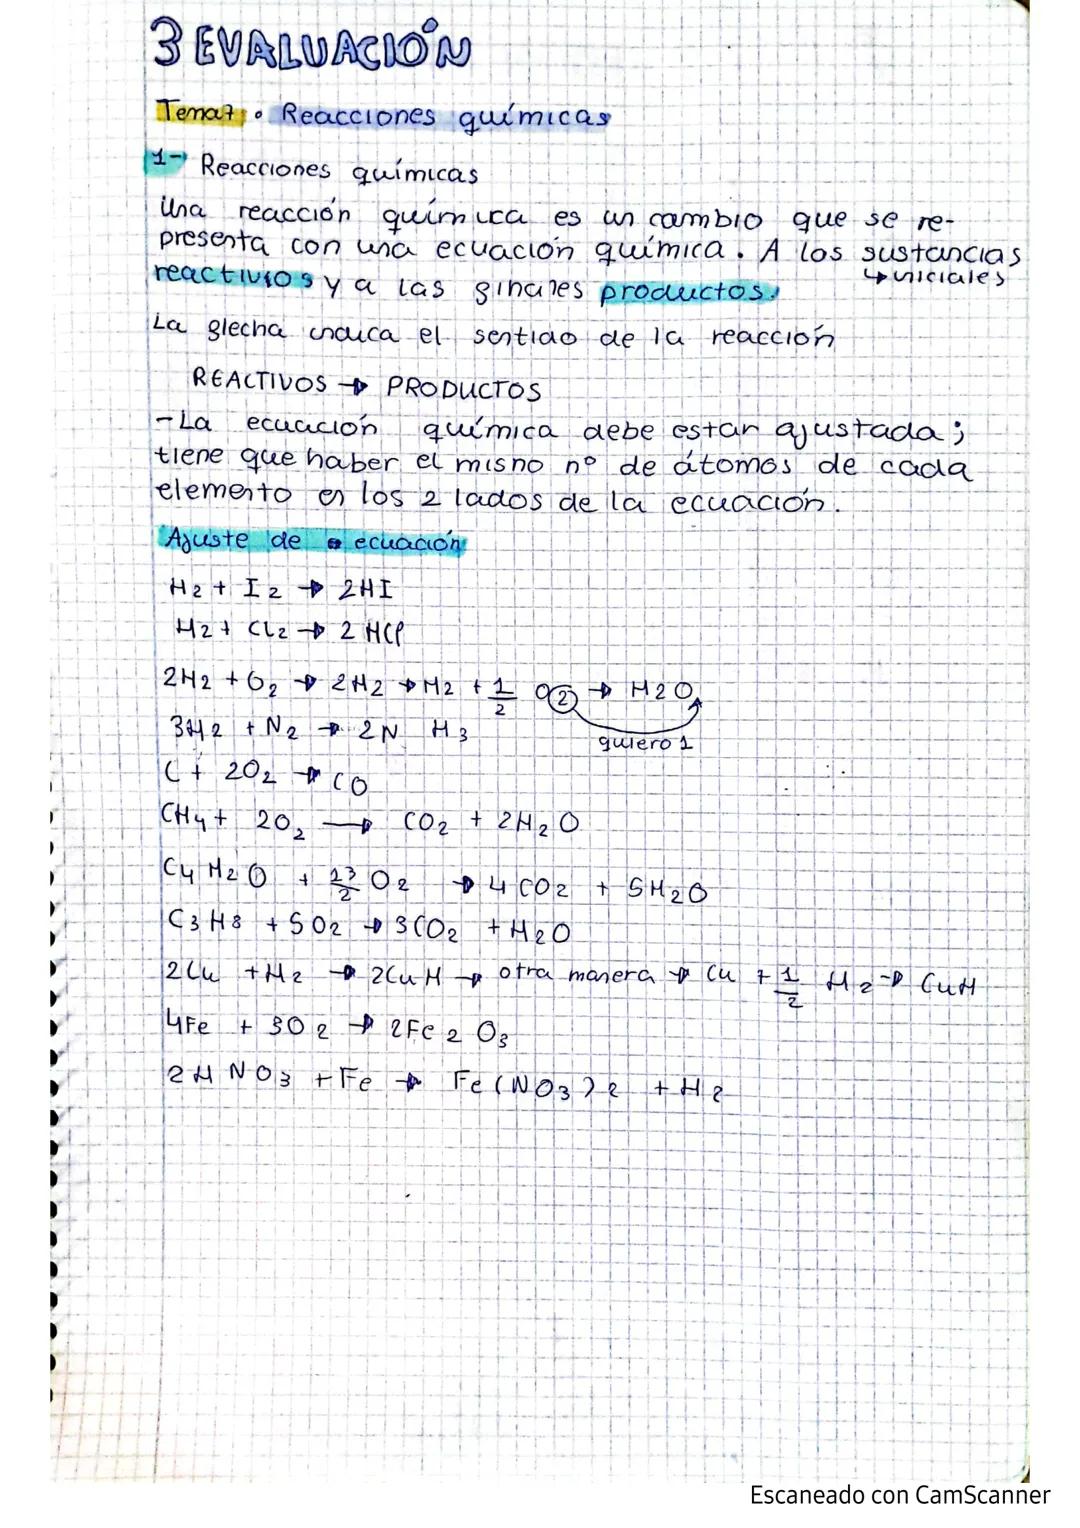 3 EVALUACIÓN
Tema 7: Reacciones químicas
1- Reacciones químicas
Una reacción química es un cambio que se re-
presenta con una ecuación química. A los sustancias
↳ iniciales
reactivos y a las finales productos.
La flecha indica el sentido de la reacción
REACTIVOS → PRODUCTOS
- La ecuación química debe estar ajustada;
tiene que haber el mismo nº de átomos de cada
elemento en los 2 lados de la ecuación.
Ajuste de ecuación
H2 + I2 → 2HI
H2 + Cl2 → 2 HCl
2H2 + O2 → 2H2 → H2 + 1/2 O2 → H2O
quiero 1
3H2 + N2 → 2N H3
C + 2O2 → CO
CH4 + 2O2 → CO2 + 2H2O
C4 H2O + 13/2 O2 → 4 CO2 + 5H2O
C3 H8 + 5O2 → 3CO2 + H2O
2Cu + H2 → 2CuH → otra manera → Cu + 1/2 H2 → CuH
4Fe + 3O2 → 2Fe2 O3
2H NO3 + Fe → Fe(NO3)2 + H2
Escaneado con CamScanner